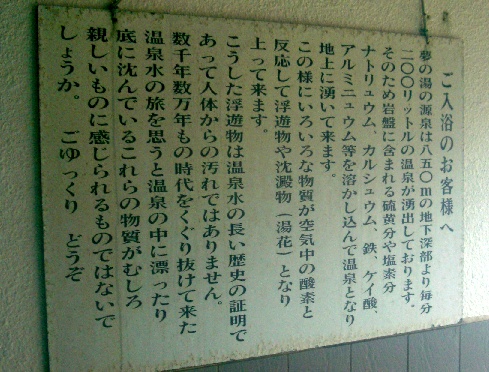 ご入浴のお客様へ
夢の湯の源泉は八五〇mの地下深部より毎分
二〇〇リットルの温泉が湧出しております。
そのため岩盤に含まれる硫黄分や塩素分
ナトリュウム、カルシュウム、鉄、ケイ酸、
アルミニュウム等を溶かし込んで温泉となり
地上に湧いて来ます。
この様にいろいろな物質が空気中の酸素と
反応して浮遊物や沈澱物(湯花)となり
上って来ます。
こうした浮遊物は温泉水の長い歴史の証明で
あって人体からの汚れではありません。
数千年数万年もの時代をくぐり抜けて来た
温泉水の旅を思うと温泉の中に漂ったり
底に沈んでいるこれらの物質がむしろ
親しいものに感じられるものではないで
しょうか。 ごゆっくり どうぞ